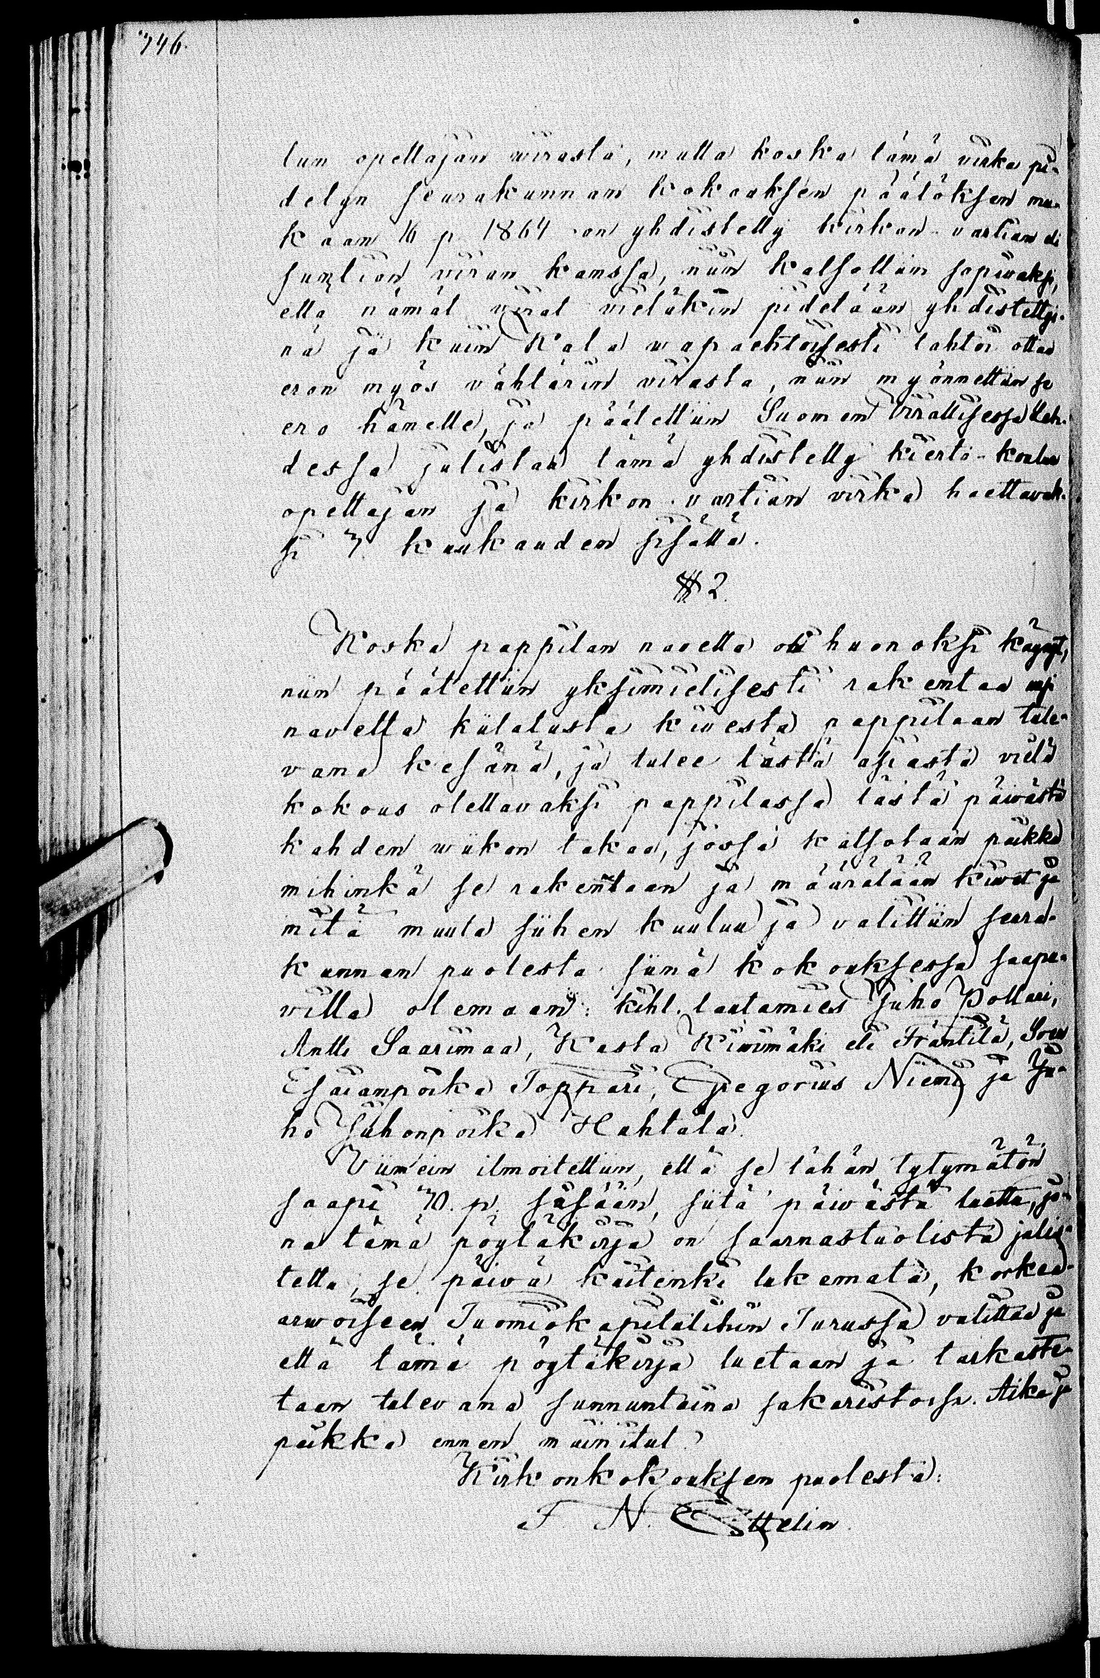 746.
lun opettajan wirasta, mutta koska tämä virka pi-
detyn seurakunnan kokouksen päätöksen mu-
kaan 16 p. 1864 on yhdistetty kirkon-vartian eli
suntion viran kanssa, niin katsottiin sopiwaksi,
että nämät virat vieläkin pidetään yhdistettyi-
nä ja kuin Kala wapaehtoisesti tahtoi ottaa
eron myös vähtärin virasta, niin myönnettiin se
ero hänelle, ja päätettiin Suomen Virallisessa Leh-
dessa julistaa tämä yhdistetty kierto-koulu
opettajan ja kirkon-vartian virka haettavak-
si 7 kuukauden sisällä.
§ 2.
Koska pappilan navetta on huonoksi käynyt,
niin päätettiin yksimielisesti rakentaa uusi
navetta kiilatusta kiwestä pappilaan tule-
vana kesänä, ja tulee tästä asiasta vielä
kokous olettavaksi pappilassa tästä päiwästä
kahden wiikon takaa, jossa katsotaan paikka
mihinkä se rakentaan ja määrätään kiwet ja
mitä muuta siihen kuuluu ja valittiin seura-
kunnan puolesta siinä kokouksessa saapu-
villa olemaan: kihl. lautamies Juho Pollari,
Antti Saarimaa, Kasta Kiwimäki eli Fräntilä,
Esaianpoika Toppari, Gregorius Niemi ja Ju-
ho Juhonpoika Hahtala.
Viimein ilmoitettiin, että se tähän tytymätön
saapi 30. p. sisään, siitä päiwästä luettu, jo-
na tämä pöytäkirja on saarnastuolista julis-
tettu, se päivä kuitenki lukemata, korkea-
arwoiseen Tuomiokapitaliihin Turussa valittaa ja
että tämä pöytäkirja luetaan ja tarkaste-
taan tulevana sunnuntaina sakaristossa. Aika ja
paikka ennen mainitut.
Kirkonkokouksen puolesta:
F. N.